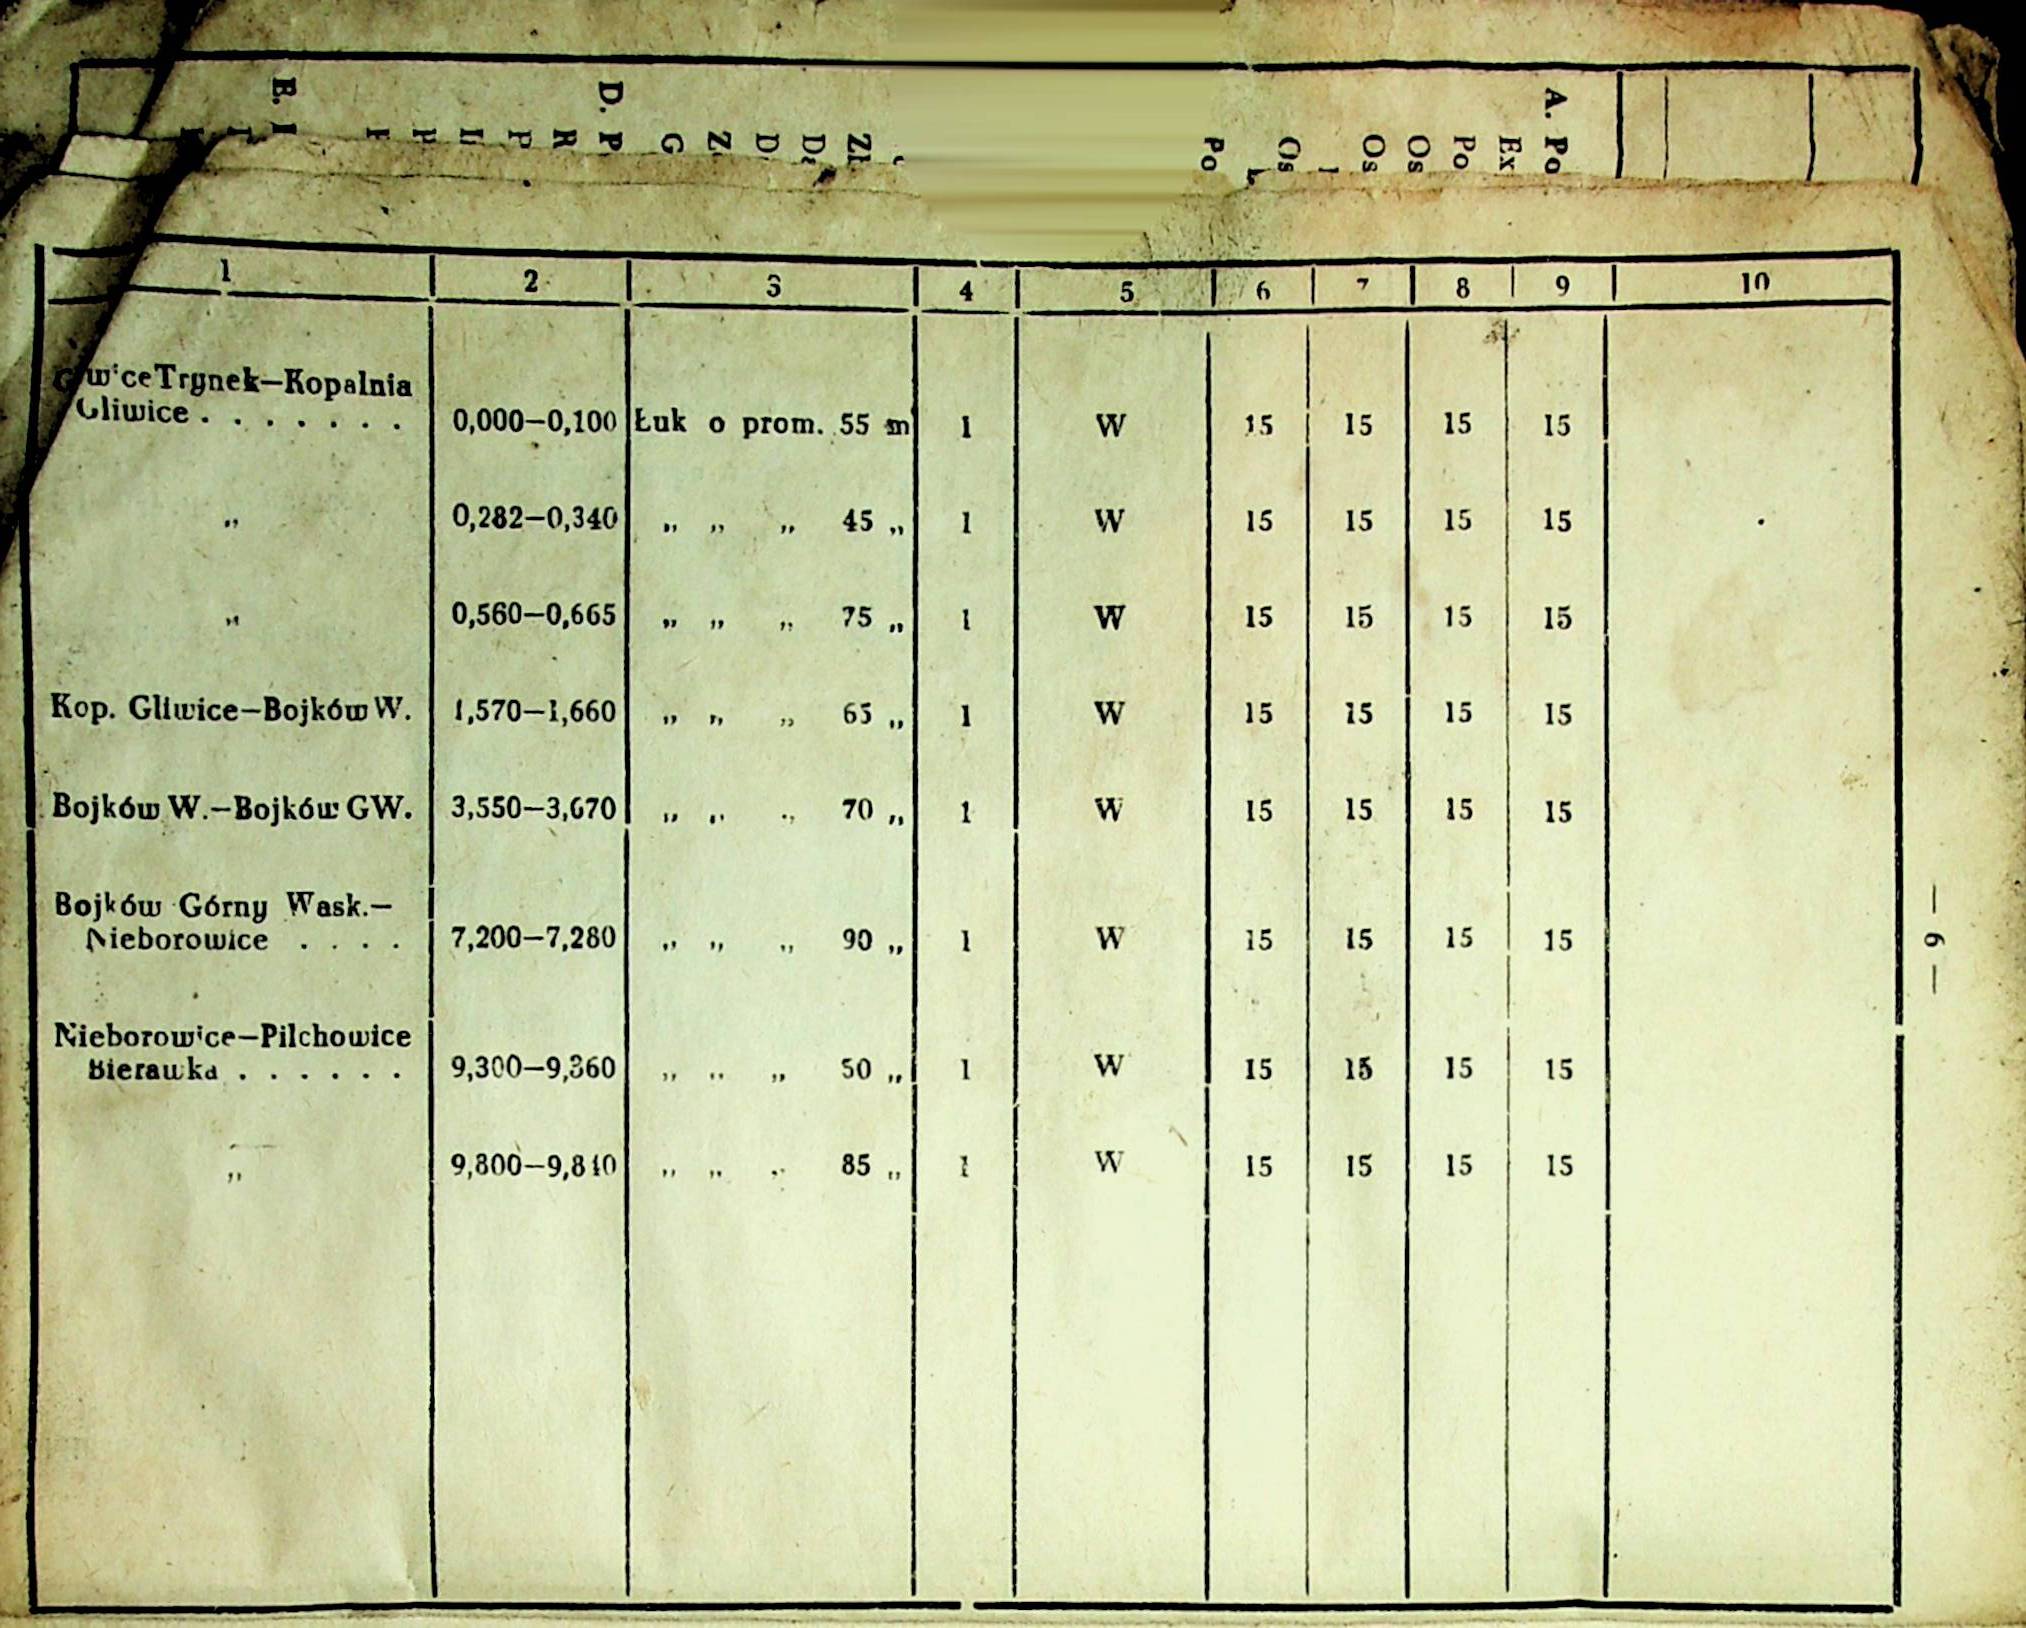 E. D. A.
G Z D Zł Po Os Os Os Po Ex Po
1 2 3 4 5 6 7 8 9 10
Gliwice Trynek—Kopalnia
Gliwice . . . . . . . 0,000—0,100 Łuk o prom. 55 m 1 W 15 15 15 15
„ 0,282—0,340 „ „ „ 45 „ 1 W 15 15 15 15
„ 0,560—0,665 „ „ „ 75 „ 1 W 15 15 15 15
Kop. Gliwice—Bojków W. 1,570—1,660 „ „ „ 65 „ 1 W 15 15 15 15
Bojków W.—Bojków GW. 3,550—3,670 „ „ „ 70 „ 1 W 15 15 15 15
Bojków Górny Wask.—
Nieborowice . . . . 7,200—7,280 „ „ „ 90 „ 1 W 15 15 15 15
Nieborowice—Pilchowice
Bierawka . . . . . . 9,300—9,360 „ „ „ 50 „ 1 W 15 15 15 15
„ 9,800—9,840 „ „ „ 85 „ 1 W 15 15 15 15
— 9 —